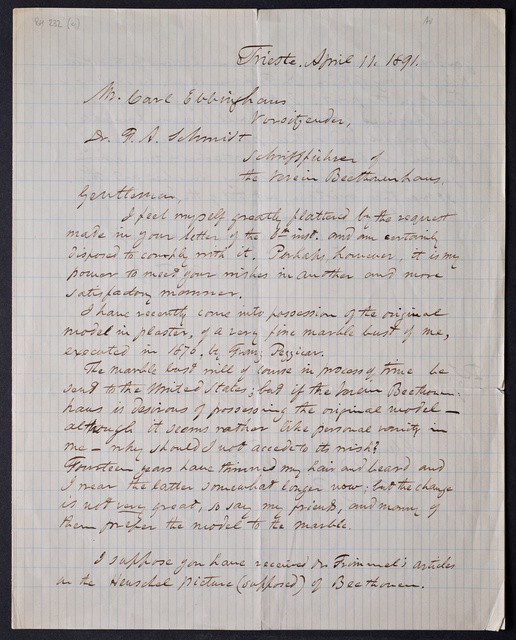 Trieste, April 11. 1891.
Mr. Carl Ebbinghaus
Vorsitzender,
Dr. F. A. Schmidt
Schriftführer of
the Verein Beethovenhaus.
Gentlemen,
I feel myself greatly flattered by the request
made in your letter of the 9th inst. and am certainly
disposed to comply with it. Perhaps, however, it is in my
power to meet your wishes in another and more
satisfactory manner.
I have recently come into possession of the original
model in plaster, of a very fine marble bust of me,
executed in 1876, by Franz Pezzicar.
The marble bust will of course in process of time be
sent to the United States; but if the Verein Beethoven-
haus is desirous of possessing the original model—
although it seems rather like personal vanity in
me— why should I not accede to its wish?
Fourteen years have thinned my hair and beard and
I wear the latter somewhat longer now; but the change
is not very great, so say my friends, and many of
them prefer the model to the marble.
I suppose you have received Dr. Frimmel's articles
on the Henschel picture (supposed) of Beethoven.